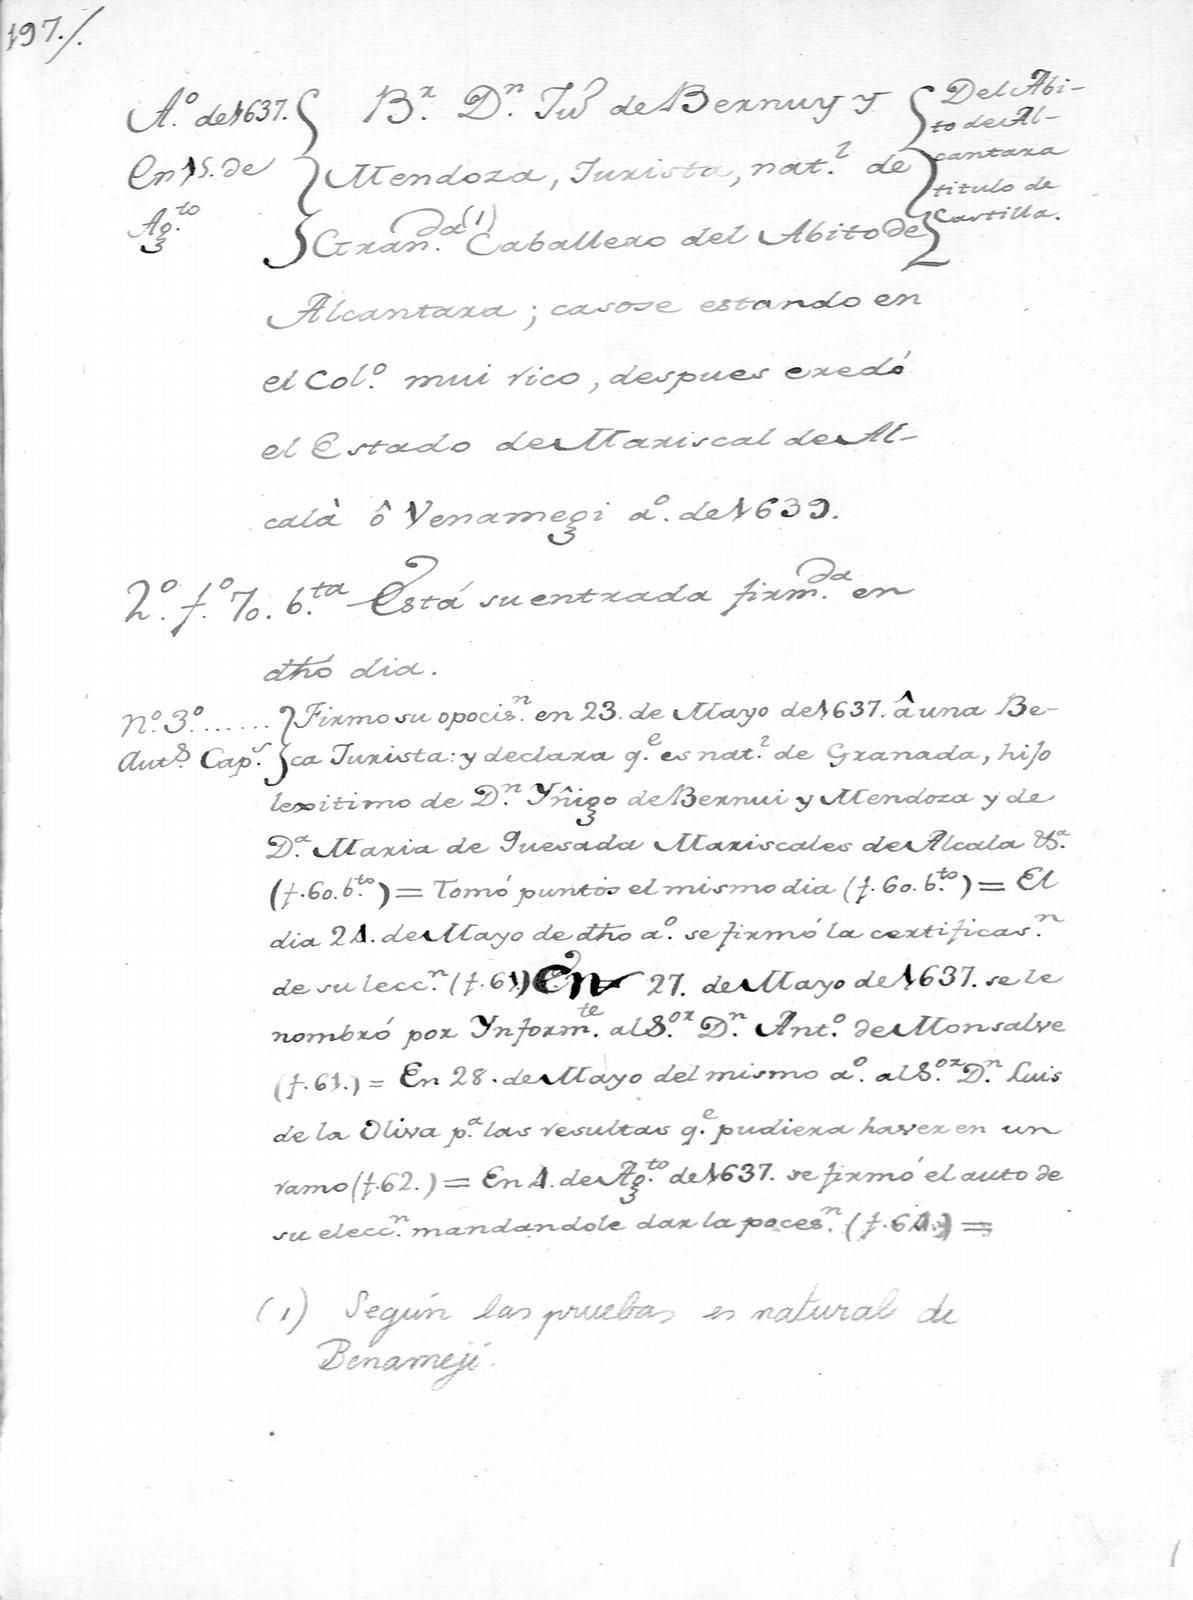 197./.
A.º de 1637.
En 15. de
Ag.to
B.r D.n Juº de Bernuy y
Mendoza, Jurista, nat.l de
Gran.da (1) Caballero del Abito de
Del Abi-
to de Al-
cantara
titulo de
Castilla.
Alcantara; casose estando en
el Col.º mui rico, despues eredó
el Estado de Mariscal de Al-
calà ô Venamegi aº. de 1639.
2.º f.º 70. b.ta Está su entrada firm.da en
dho dia.
Nº. 3º......
Aut.s Cap.s
Firmo su opocis.n en 23. de Mayo de 1637. â una Be-
ca Jurista: y declara q.e es nat.l de Granada, hijo
lexitimo de D.n Yñigo de Bernui y Mendoza y de
D.a Maria de Quesada Mariscales de Alcala &.a
(f. 60. b.to) = Tomó puntos el mismo dia (f. 60. b.to) = El
dia 24. de Mayo de dho aº. se firmó la certificas.n
de su lecc.n (f. 61) En 27. de Mayo de 1637. se le
nombró por Ynform.te al S.or D.n Ant.º de Monsalve
(f. 61.) = En 28. de Mayo del mismo aº. al S.or D.n Luis
de la Oliva p.a las resultas q.e pudiera haver en un
ramo (f. 62.) = En 4. de Ag.to de 1637. se firmó el auto de
su elecc.n mandandole dar la poces.n (f. 64.) =
(1) Según las pruebas es natural de
Benamejí.